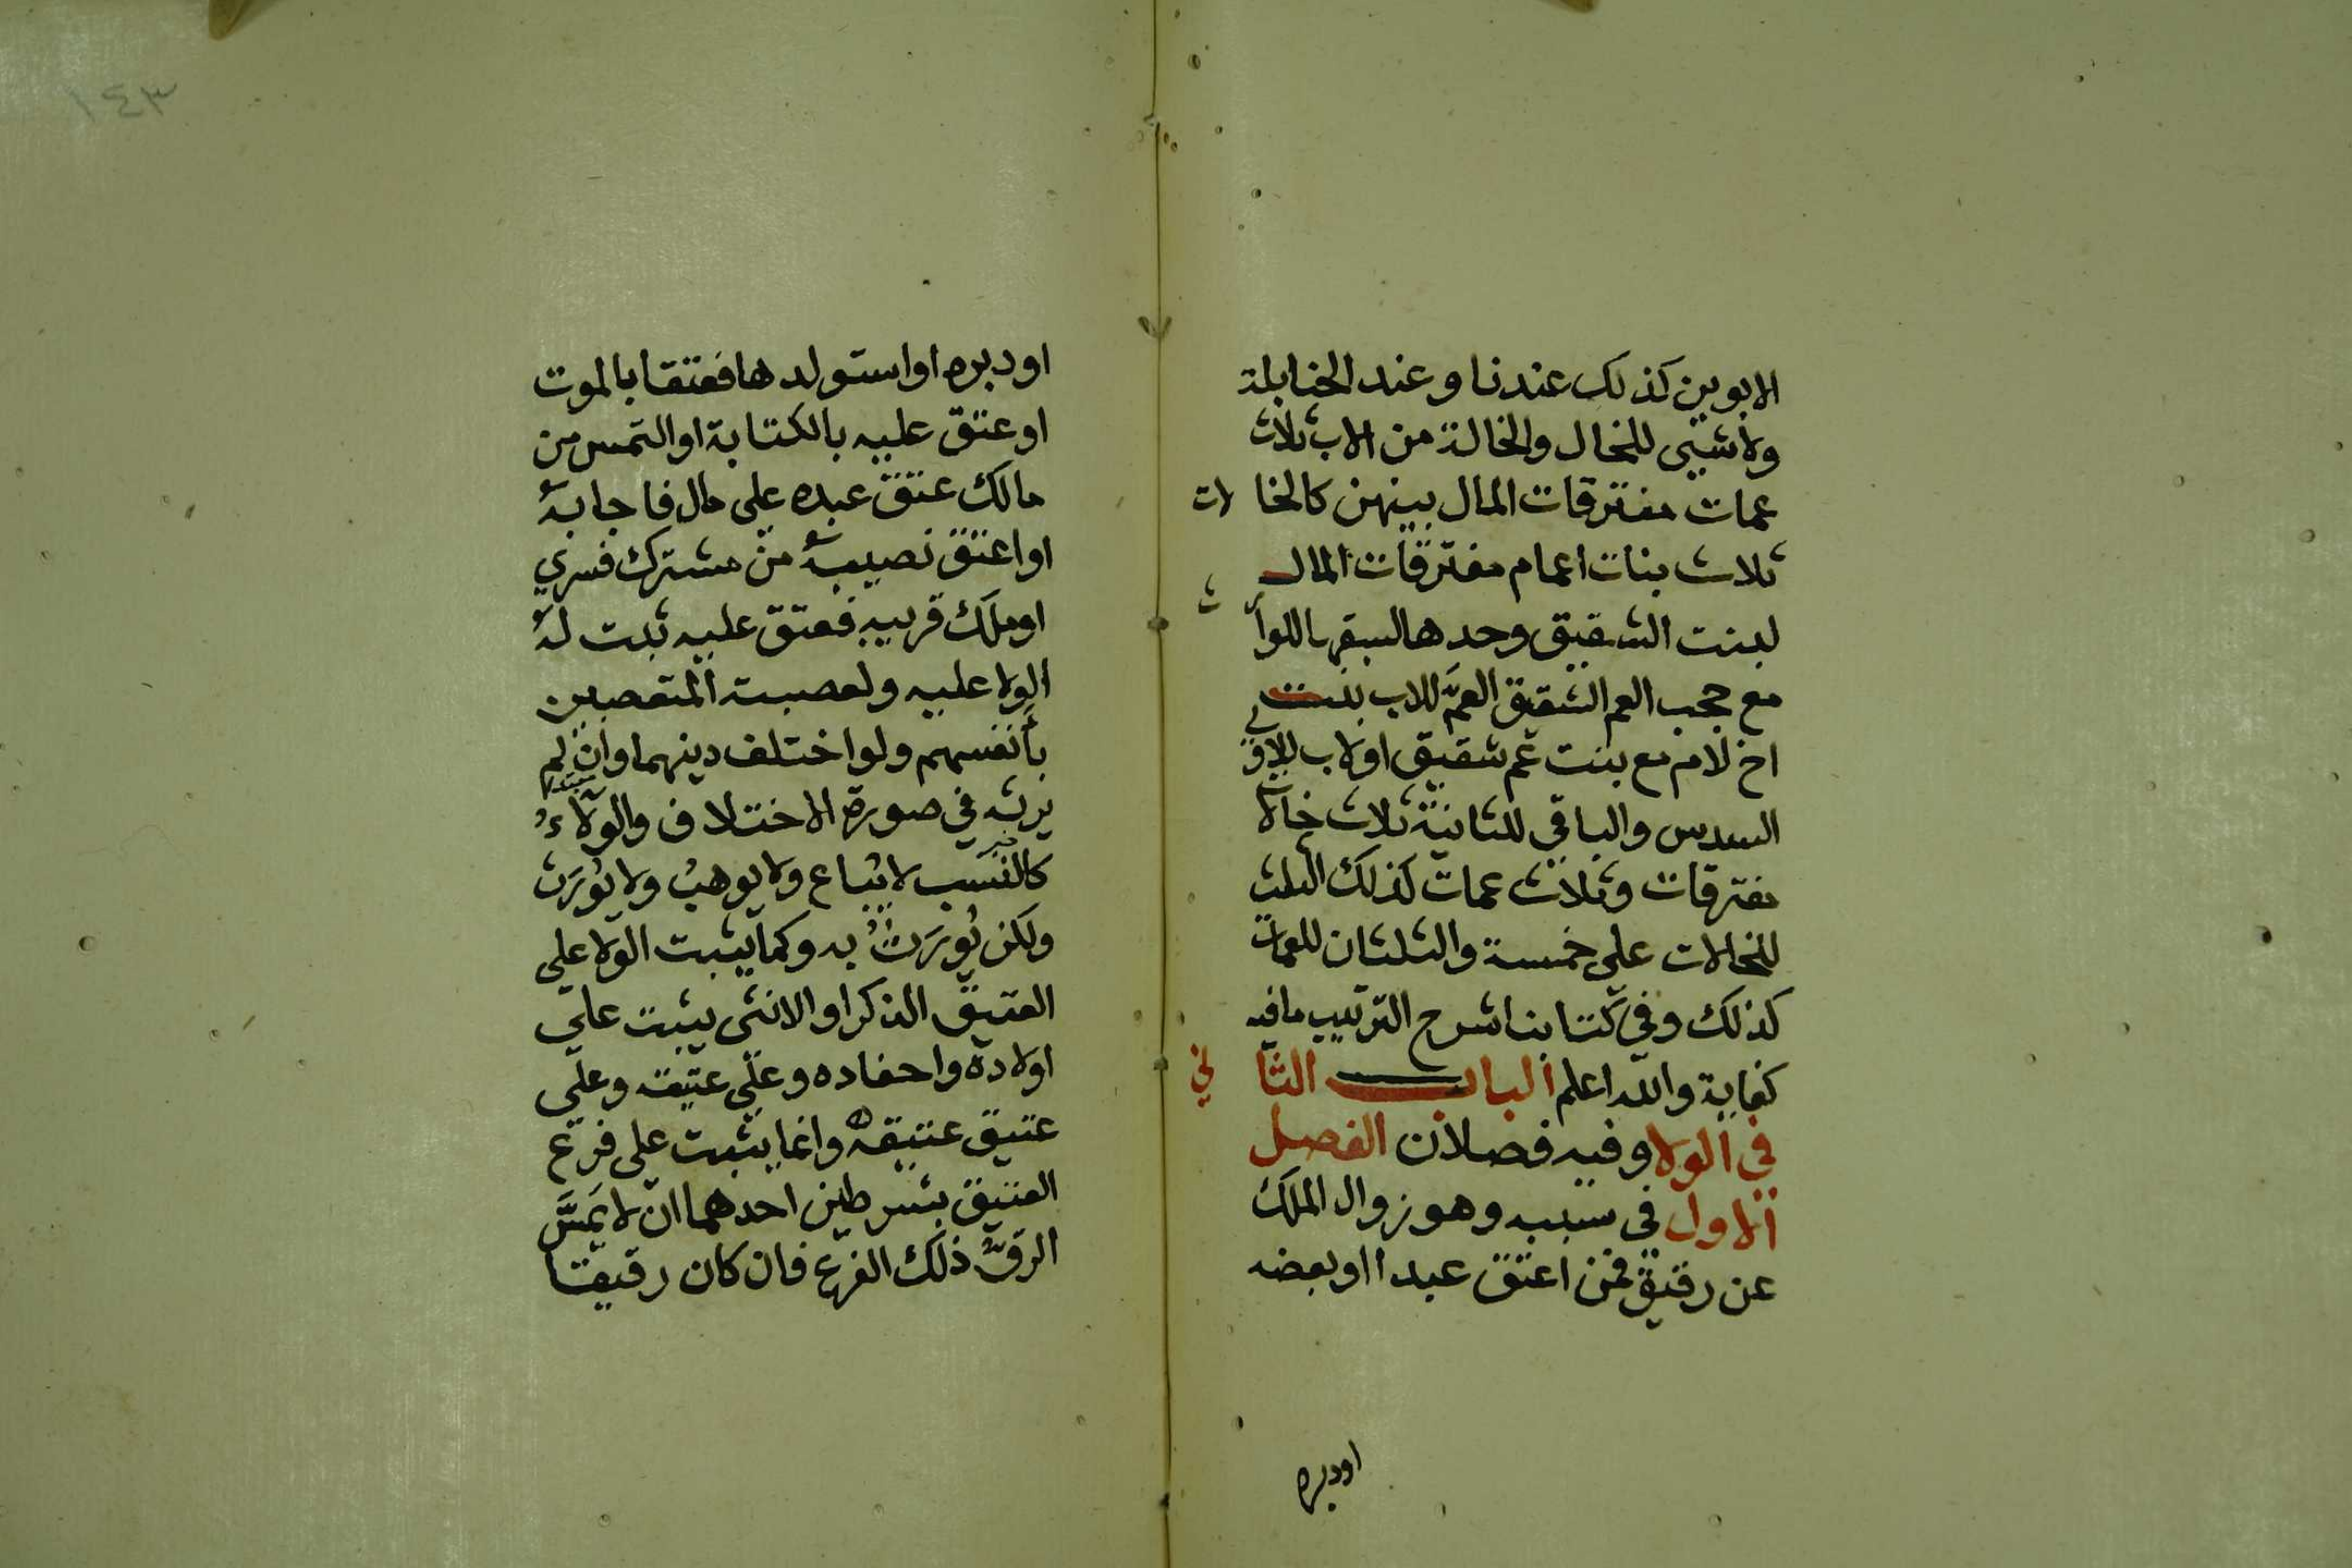 الابوين كذلك عندنا وعند الحنابلة
ولاشيى للخال والخالة من الاب ثلاث
عمات مفترقات المال بينهن كالخالات
ثلاث بنات اعمام مفترقات المال
لبنت الشقيق وحدها لسبقها للوارث
مع حجب العم الشقيق العمَّ للاب بنت
اخ لام مع بنت عم شقيق اولاب للاولى
السدس والباقي للثانية ثلاث خالات
مفترقات وثلاث عمات كذلك الثلث
للخالات على خمسة والثلثان للعمات
كذلك وفي كتابنا شرح الترتيب مافيه
كفاية والله اعلم الباب الثاني
في الولا وفيه فصلان الفصل
الاول في سببه وهو زوال الملك
عن رقيق فمن اعتق عبدا او بعضه
اودبره
١٤٣
اودبره او استولدها فعتقا بالموت
اوعتق عليه بالكتابة او التمس من
مالك عتق عبده علي مال فاجابه
او اعتق نصيبه من مشترك فسري
اوملك قريبه فعتق عليه ثبت له
الولا عليه ولعصبته المتعصبين
بأنفسهم ولو اختلف دينهما وان لم
يرث في صورة الاختلاف والولاءُ
كالنسب لا يُباع ولا يوهبُ ولا يُورَث
ولكن يُورَثُ به وكما يثبت الولا علي
العتيق الذكر او الانثى يثبت علي
اولاده واحفاده وعلي عتيقه وعلي
عتيق عتيقه وانما يثبت علي فرع
العتيق بشرطين احدهما ان لا يَمَسَّ
الرقُّ ذلك الفرع فان كان رقيقا